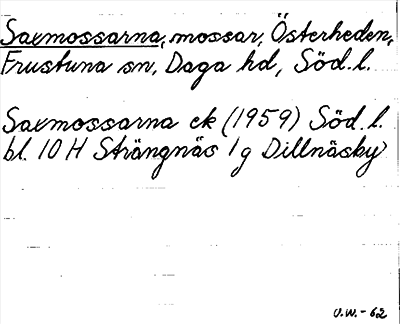 Saxmossarna, mossar, Österheden,
Frustuna sn, Daga hd, Söd. l.
Saxmossarna ek (1959) Söd. l.
bl. 10 H Strängnäs 1 g Dillnäsby
U.W.-62